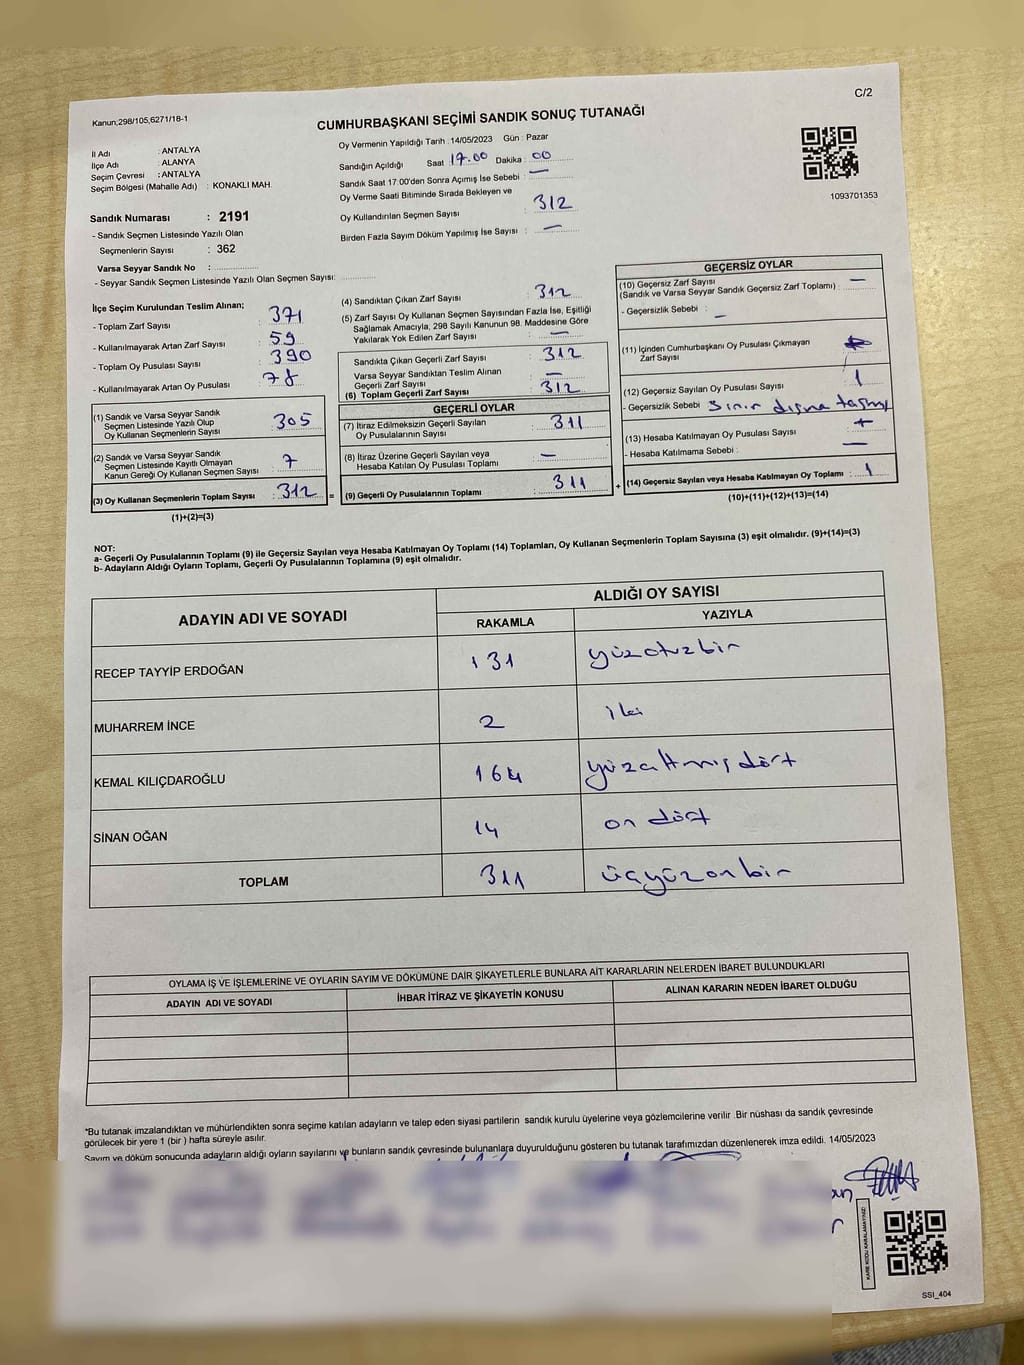 C/2
Kanun;298/105,6271/18-1
CUMHURBAŞKANI SEÇİMİ SANDIK SONUÇ TUTANAĞI
İl Adı : ANTALYA
İlçe Adı : ALANYA
Seçim Çevresi : ANTALYA
Seçim Bölgesi (Mahalle Adı) : KONAKLI MAH.
Sandık Numarası : 2191
- Sandık Seçmen Listesinde Yazılı Olan
Seçmenlerin Sayısı : 362
Varsa Seyyar Sandık No :
- Seyyar Sandık Seçmen Listesinde Yazılı Olan Seçmen Sayısı:
Oy Vermenin Yapıldığı Tarih :14/05/2023 Gün : Pazar
Sandığın Açıldığı Saat 17.00 Dakika : 00
Sandık Saat 17.00'den Sonra Açımış İse Sebebi : —
Oy Verme Saati Bitiminde Sırada Bekleyen ve
Oy Kullandırılan Seçmen Sayısı : 312
Birden Fazla Sayım Döküm Yapılmış İse Sayısı : —
1093701353
İlçe Seçim Kurulundan Teslim Alınan;
- Toplam Zarf Sayısı : 371
- Kullanılmayarak Artan Zarf Sayısı : 59
- Toplam Oy Pusulası Sayısı : 390
- Kullanılmayarak Artan Oy Pusulası : 78
(1) Sandık ve Varsa Seyyar Sandık
Seçmen Listesinde Yazılı Olup
Oy Kullanan Seçmenlerin Sayısı : 305
(2) Sandık ve Varsa Seyyar Sandık
Seçmen Listesinde Kayıtlı Olmayan
Kanun Gereği Oy Kullanan Seçmen Sayısı : 7
(3) Oy Kullanan Seçmenlerin Toplam Sayısı : 312 =
(1)+(2)=(3)
(4) Sandıktan Çıkan Zarf Sayısı : 312
(5) Zarf Sayısı Oy Kullanan Seçmen Sayısından Fazla İse, Eşitliği
Sağlamak Amacıyla, 298 Sayılı Kanunun 98. Maddesine Göre
Yakılarak Yok Edilen Zarf Sayısı : —
Sandıkta Çıkan Geçerli Zarf Sayısı : 312
Varsa Seyyar Sandıktan Teslim Alınan
Geçerli Zarf Sayısı : —
(6) Toplam Geçerli Zarf Sayısı : 312
GEÇERLİ OYLAR
(7) İtiraz Edilmeksizin Geçerli Sayılan
Oy Pusulalarının Sayısı : 311
(8) İtiraz Üzerine Geçerli Sayılan veya
Hesaba Katılan Oy Pusulası Toplamı : —
(9) Geçerli Oy Pusulalarının Toplamı : 311 +
GEÇERSİZ OYLAR
(10) Geçersiz Zarf Sayısı
(Sandık ve Varsa Seyyar Sandık Geçersiz Zarf Toplamı) : —
- Geçersizlik Sebebi : —
(11) İçinden Cumhurbaşkanı Oy Pusulası Çıkmayan
Zarf Sayısı :
(12) Geçersiz Sayılan Oy Pusulası Sayısı : 1
- Geçersizlik Sebebi Sınır dışına taşmış
(13) Hesaba Katılmayan Oy Pusulası Sayısı :
- Hesaba Katılmama Sebebi : —
(14) Geçersiz Sayılan veya Hesaba Katılmayan Oy Toplamı : 1
(10)+(11)+(12)+(13)=(14)
NOT:
a- Geçerli Oy Pusulalarının Toplamı (9) ile Geçersiz Sayılan veya Hesaba Katılmayan Oy Toplamı (14) Toplamları, Oy Kullanan Seçmenlerin Toplam Sayısına (3) eşit olmalıdır. (9)+(14)=(3)
b- Adayların Aldığı Oyların Toplamı, Geçerli Oy Pusulalarının Toplamına (9) eşit olmalıdır.
ADAYIN ADI VE SOYADI ALDIĞI OY SAYISI
RAKAMLA YAZIYLA
RECEP TAYYİP ERDOĞAN 131 yüzotuzbir
MUHARREM İNCE 2 iki
KEMAL KILIÇDAROĞLU 164 yüzaltmışdört
SİNAN OĞAN 14 on dört
TOPLAM 311 üçyüzonbir
OYLAMA İŞ VE İŞLEMLERİNE VE OYLARIN SAYIM VE DÖKÜMÜNE DAİR ŞİKAYETLERLE BUNLARA AİT KARARLARIN NELERDEN İBARET BULUNDUKLARI
ADAYIN ADI VE SOYADI İHBAR İTİRAZ VE ŞİKAYETİN KONUSU ALINAN KARARIN NEDEN İBARET OLDUĞU
*Bu tutanak imzalandıktan ve mühürlendikten sonra seçime katılan adayların ve talep eden siyasi partilerin sandık kurulu üyelerine veya gözlemcilerine verilir .Bir nüshası da sandık çevresinde
görülecek bir yere 1 (bir ) hafta süreyle asılır.
Sayım ve döküm sonucunda adayların aldığı oyların sayılarını ve bunların sandık çevresinde bulunanlara duyurulduğunu gösteren bu tutanak tarafımızdan düzenlenerek imza edildi. 14/05/2023
KARE KODU KARALAMAYINIZ!
SSI_404